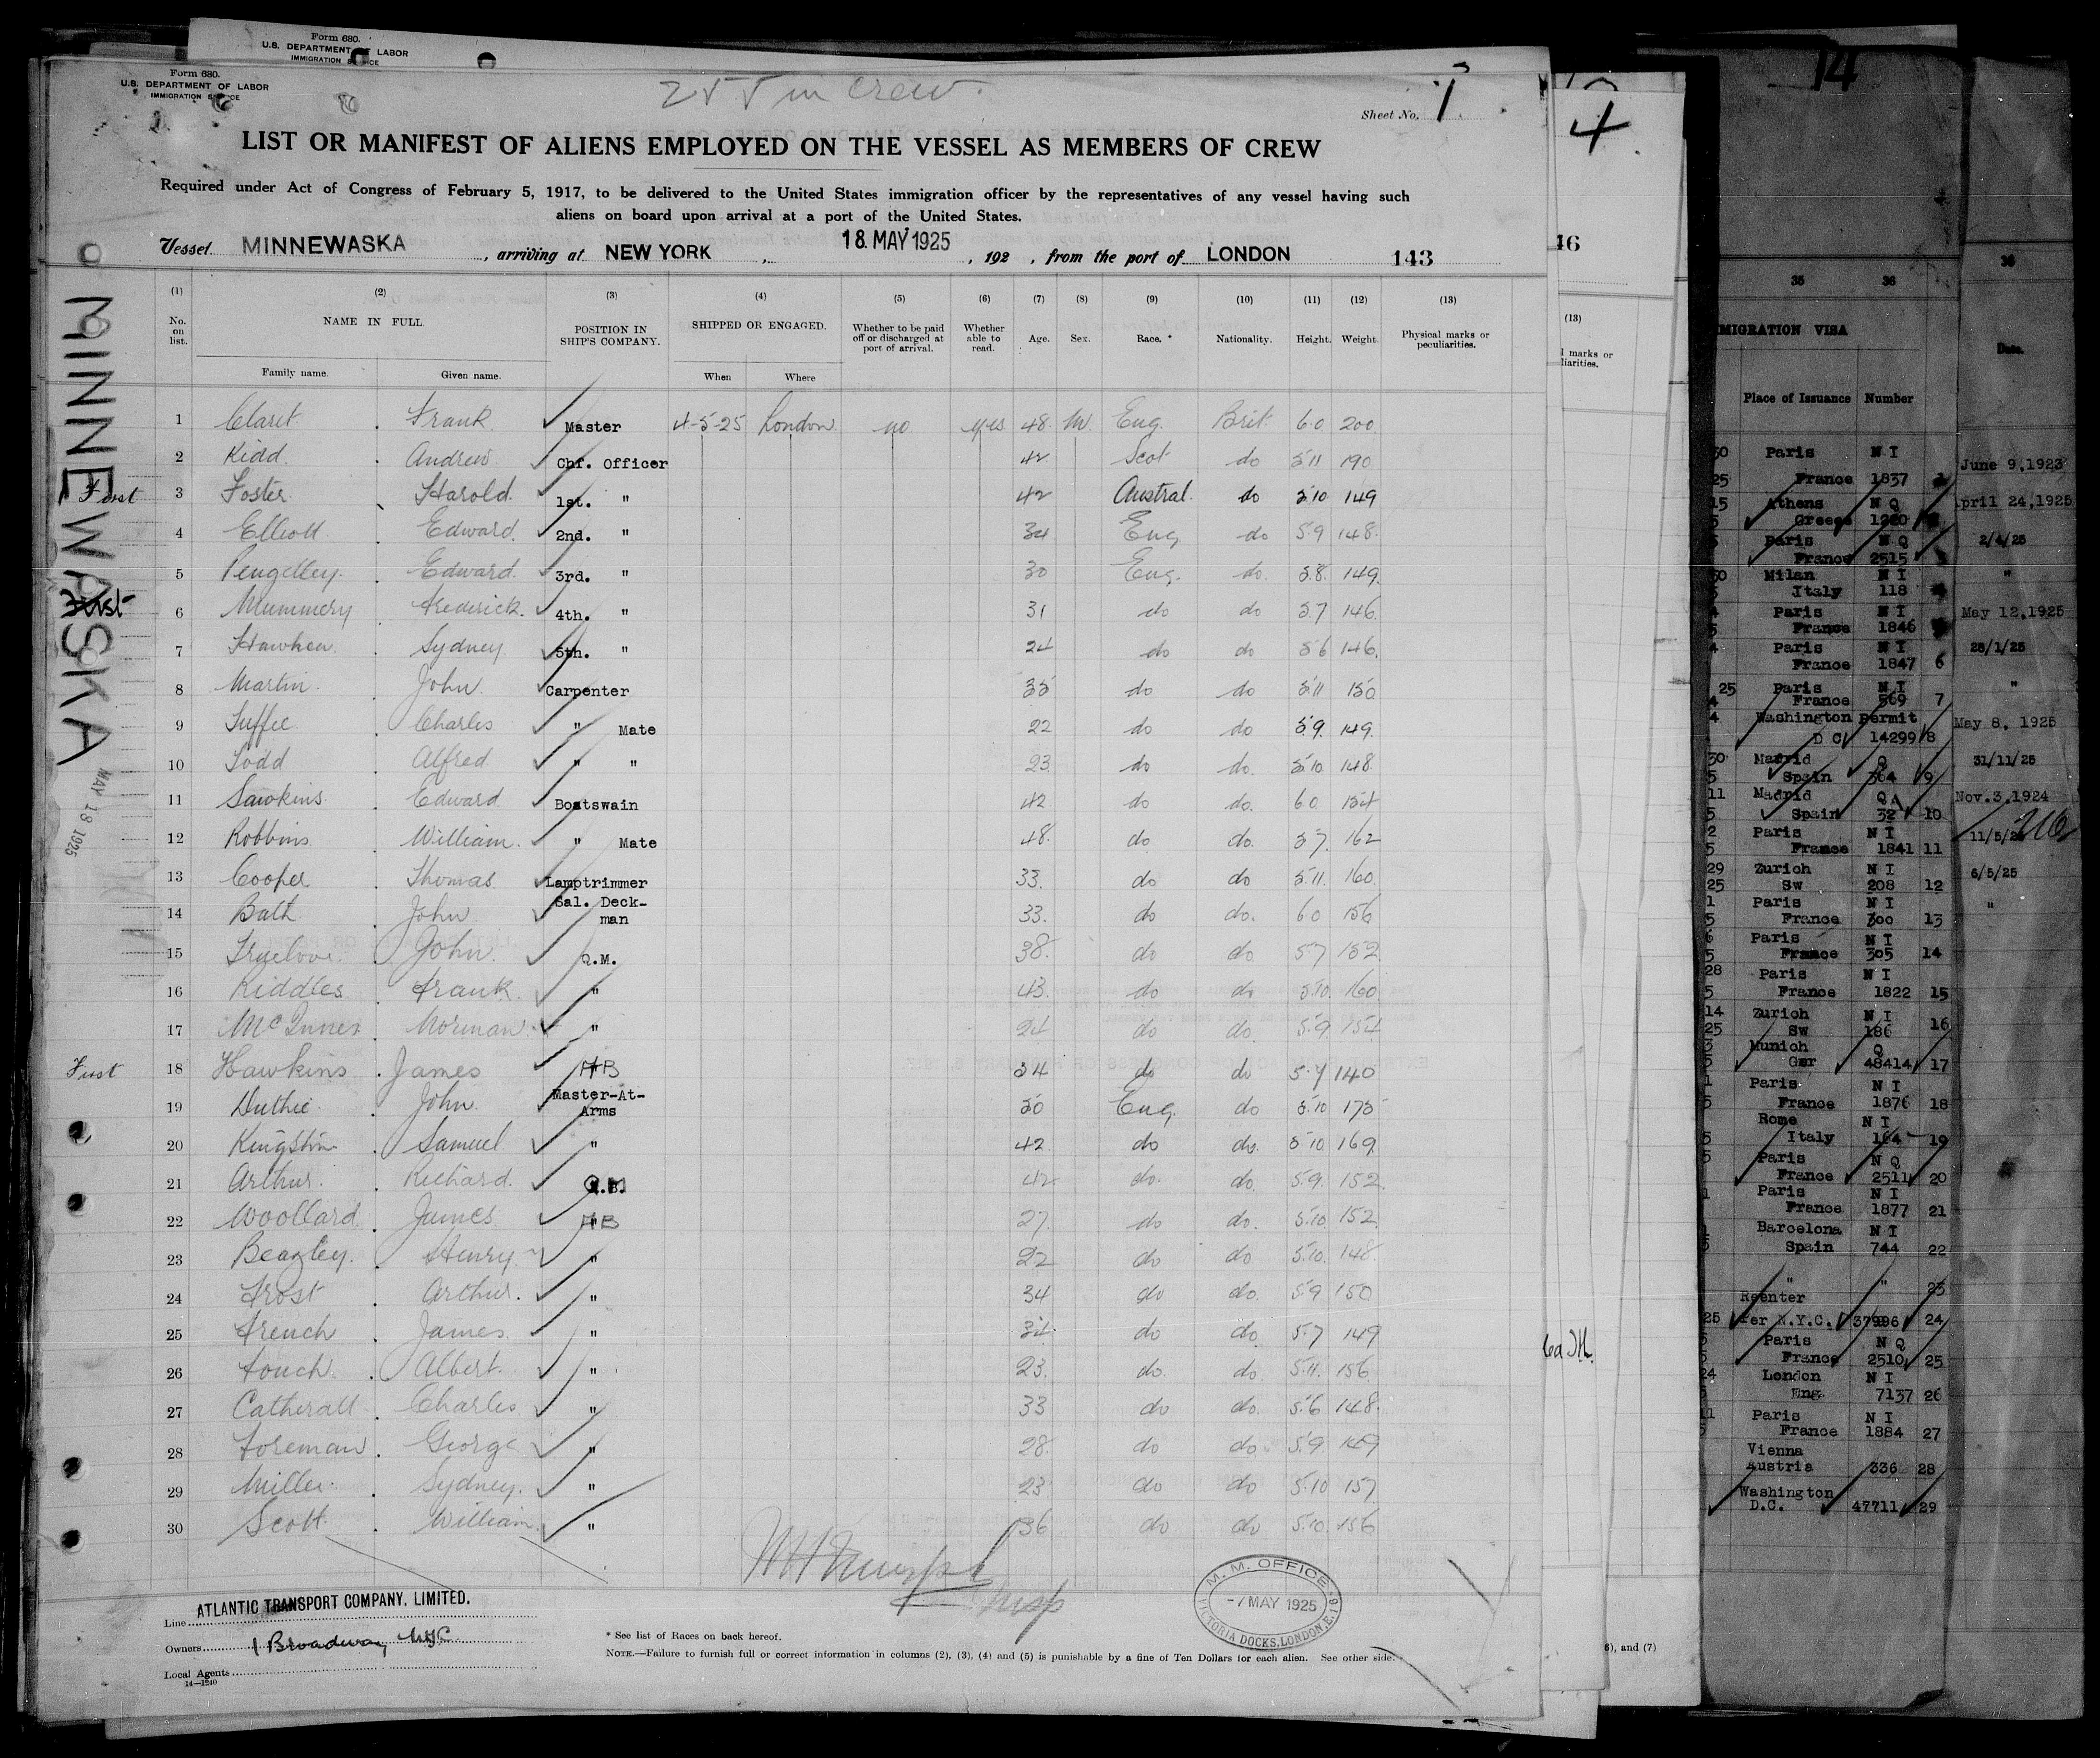 Form 680.
U.S. DEPARTMENT OF LABOR
IMMIGRATION
Form 680.
U.S. DEPARTMENT OF LABOR
IMMIGRATION
255 in crew.
Sheet No. 1
LIST OR MANIFEST OF ALIENS EMPLOYED ON THE VESSEL AS MEMBERS OF CREW
Required under Act of Congress of February 5, 1917, to be delivered to the United States immigration officer by the representatives of any vessel having such
aliens on board upon arrival at a port of the United States.
Vessel MINNEWASKA, arriving at NEW YORK, 18 MAY 1925, 192 , from the port of LONDON 143
(1) (2) (3) (4) (5) (6) (7) (8) (9) (10) (11) (12) (13)
No. on list. NAME IN FULL. POSITION IN SHIP'S COMPANY. SHIPPED OR ENGAGED. Whether to be paid off or discharged at port of arrival. Whether able to read. Age. Sex. Race. * Nationality. Height. Weight. Physical marks or peculiarities.
Family name. Given name. When Where
1 Claret Frank Master 4-5-25 London no yes 48 M. Eng. Brit 6.0 200
2 Kidd Andrew Chf. Officer 42 Scot do 5.11 190
First 3 Foster Harold 1st. " 42 Austral. do 5.10 149
4 Elliott Edward 2nd. " 34 Eng do 5.9 148
5 Pengelley Edward 3rd. " 30 Eng. do. 5.8 149
First 6 Mummery Frederick 4th. " 31 do do 5.7 146
7 Hawken Sydney 5th. " 24 do do 5.6 146
8 Martin John Carpenter 35 do do 5.11 150
9 Charles " Mate 22 do do 5.9 149
10 Todd Alfred " " 23 do do. 5.10 148
11 Sawkins Edward Boatswain 42 do do. 6.0 154
12 Robbins William " Mate 48 do do. 5.7 162
13 Cooper Thomas Lamptrimmer 33 do do 5.11 160
14 Batt John Sal. Deck-man 33 do do. 6.0 156
15 Truelove John Q.M. 38 do do 5.7 152
16 Kiddles Frank " 43 do do 5.10 160
17 McInnes Norman " 24 do do. 5.9 154
First 18 Hawkins James AB 34 do do 5.7 140
19 Duthie John Master-At-Arms 50 Eng. do 5.10 175
20 Kingston Samuel " 42 do do. 5.10 169
21 Arthur Richard 42 do do 5.9 152
22 Woollard James AB 27 do do. 5.10 152
23 Beazley Henry " 22 do do 5.10 148
24 Frost Arthur " 34 do do. 5.9 150
25 French James " do do 5.7 149
26 Touch Albert " 23 do do 5.11 156
27 Catherall Charles " 33 do do. 5.6 148
28 Foreman George " 28 do do 5.9 149
29 Miller Sydney " 23 do do 5.10 157
30 Scott William " 36 do do 5.10 156
MINNEWASKA
MAY 18 1925
Insp
M. M. OFFICE
-7 MAY 1925
VICTORIA DOCKS, LONDON, E.16
Line ATLANTIC TRANSPORT COMPANY, LIMITED.
Owners 1 Broadway NYC
Local Agents
14—1240
* See list of Races on back hereof.
NOTE.—Failure to furnish full or correct information in columns (2), (3), (4) and (5) is punishable by a fine of Ten Dollars for each alien. See other side.
4
46
(13)
marks or
liarities.
6), and (7)
14
35 36
MIGRATION VISA
Place of Issuance Number
Paris N I
France 1837
Athens N Q
Greece
Paris N Q
France 2515
Milan N I
Italy 118
Paris N I
France 1846
Paris N I
France 1847 6
Paris N I
France 569 7
Washington permit
D C 14299 8
Madrid Q
Spain 364 9
Madrid Q
Spain 32 10
Paris N I
France 1841 11
Zurich N I
Sw 208 12
Paris N I
France 300 13
Paris N I
France 305 14
Paris N I
France 1822 15
Zurich N I
Sw 186 16
Munich Q
Ger 48414 17
Paris N I
France 1876 18
Rome N I
Italy 164 19
Paris N Q
France 2511 20
Paris N I
France 1877 21
Barcelona N I
Spain 744 22
" " 23
Reenter
Per N.Y.C. 37996 24
Paris N Q
France 2510 25
London N I
Eng. 7137 26
Paris N I
France 1884 27
Vienna
Austria 336 28
Washington
D.C. 47711 29
36
Date.
June 9, 1923
April 24, 1925
2/4/25
"
May 12, 1925
28/1/25
"
May 8, 1925
31/11/25
Nov. 3, 1924
6/5/25
"